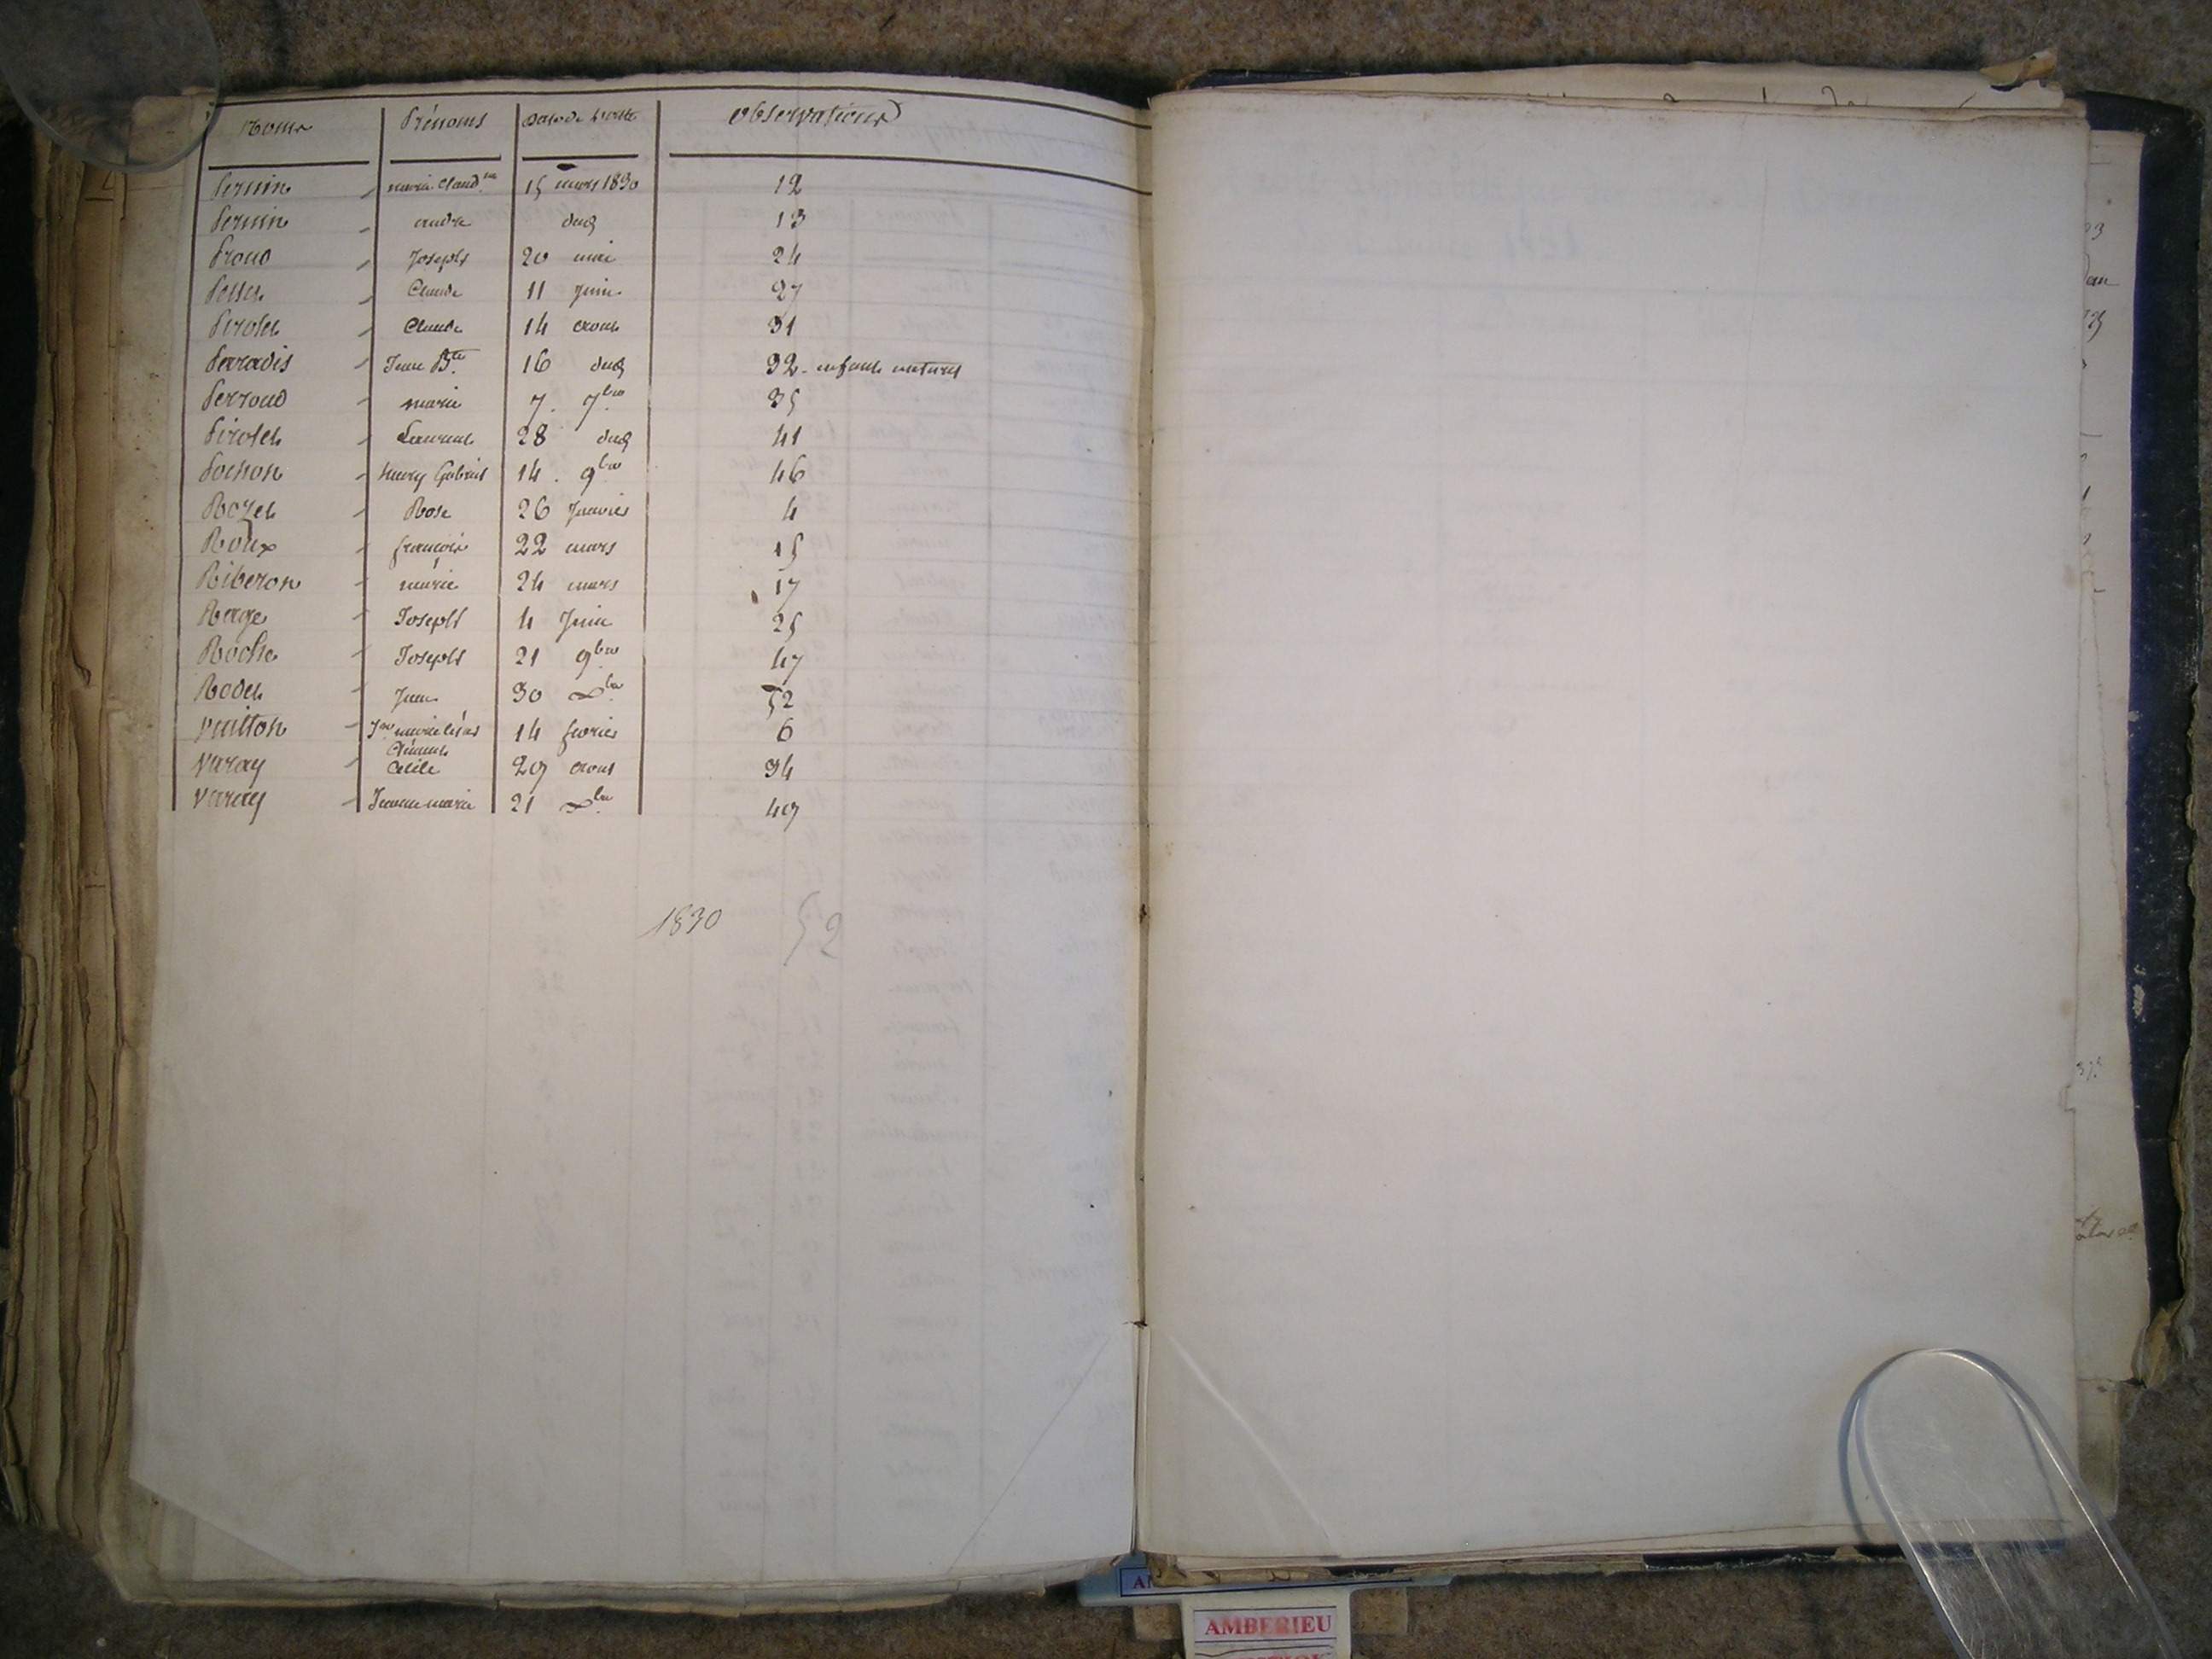 Noms Prénoms Observations
Pernin Marie Claud.ne 15 mars 1830 12
Pernin andré dud 13
Proud Joseph 20 mai 24
Claude 11 Juin 27
Pirolet Claude 14 aout 31
Perradis Jean B.te 16 dud 32 - enfant naturel
Perroud marie 7. 7bre 35
Pirolet Laurent 28 dud 41
Pochon henry Gabriel 14. 9bre 46
Rozet Rose 26 Janvier 4
Roux françois 22 mars 15
Riberon marie 24 mars 17
Rage Joseph 4 Juin 25
Roche Joseph 21 9bre 47
Rodet Jean 30 Xbre 52
Vuitton 14 fevrier 6
Varay Clémence Cécile 29 aout 34
Varay Jeanne marie 21 Xbre 49
1830 52
AMBERIEU